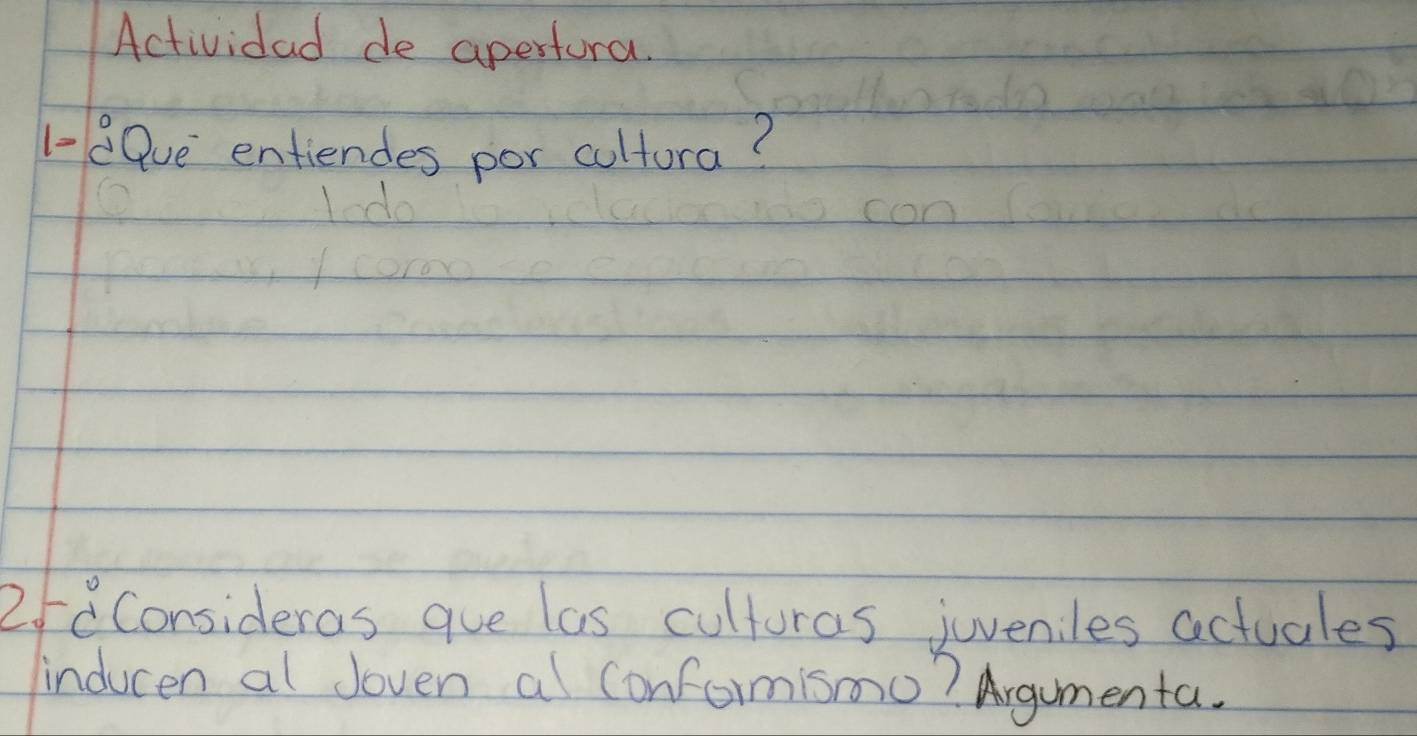 Actividad de apertura.
1- ¿Qué entiendes por cultura?
Todo con
y como
2.- ¿Consideras que las culturas juveniles actuales
inducen al Joven al Conformismo? Argumenta.